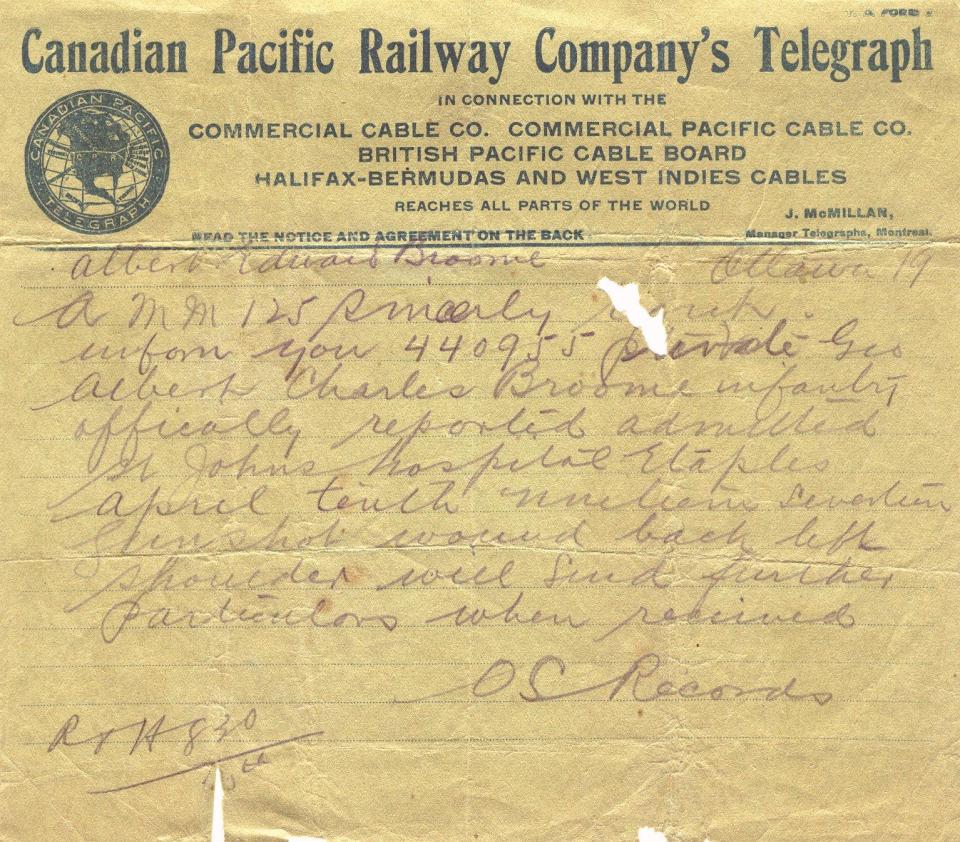 Canadian Pacific Railway Company's Telegraph
IN CONNECTION WITH THE
CANADIAN PACIFIC TELEGRAPH
COMMERCIAL CABLE CO. COMMERCIAL PACIFIC CABLE CO.
BRITISH PACIFIC CABLE BOARD
HALIFAX-BERMUDAS AND WEST INDIES CABLES
REACHES ALL PARTS OF THE WORLD
J. McMILLAN,
READ THE NOTICE AND AGREEMENT ON THE BACK
Manager Telegraphs, Montreal.
Albert Edward Broome Ottawa 19
A MM 125 Sincerly
inform you 440955 private Geo
Albert Charles Broome infantry
offically reported admitted
St Johns hospital Etaples
April tenth
Gunshot wound back left
shoulder will Send further
particulars when received
OC Records
830